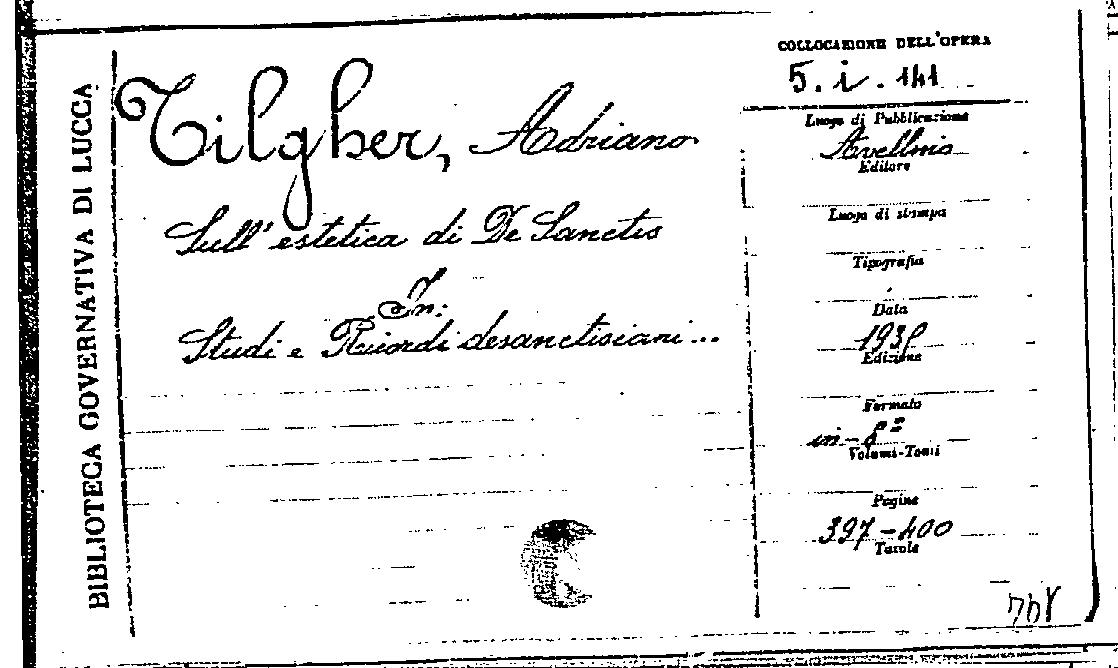 BIBLIOTECA GOVERNATIVA DI LUCCA
Tilgher, Adriano
Sull'estetica di De Sanctis
In:
Studi e Ricordi desanctisiani...
COLLOCAZIONE DELL'OPERA
5. i. 141
Luogo di Pubblicazione
Avellino
Editore
Luogo di stampa
Tipografia
Data
1935
Edizione
Formato
in-8º
Volumi-Tomi
Pagine
397-400
Tavole